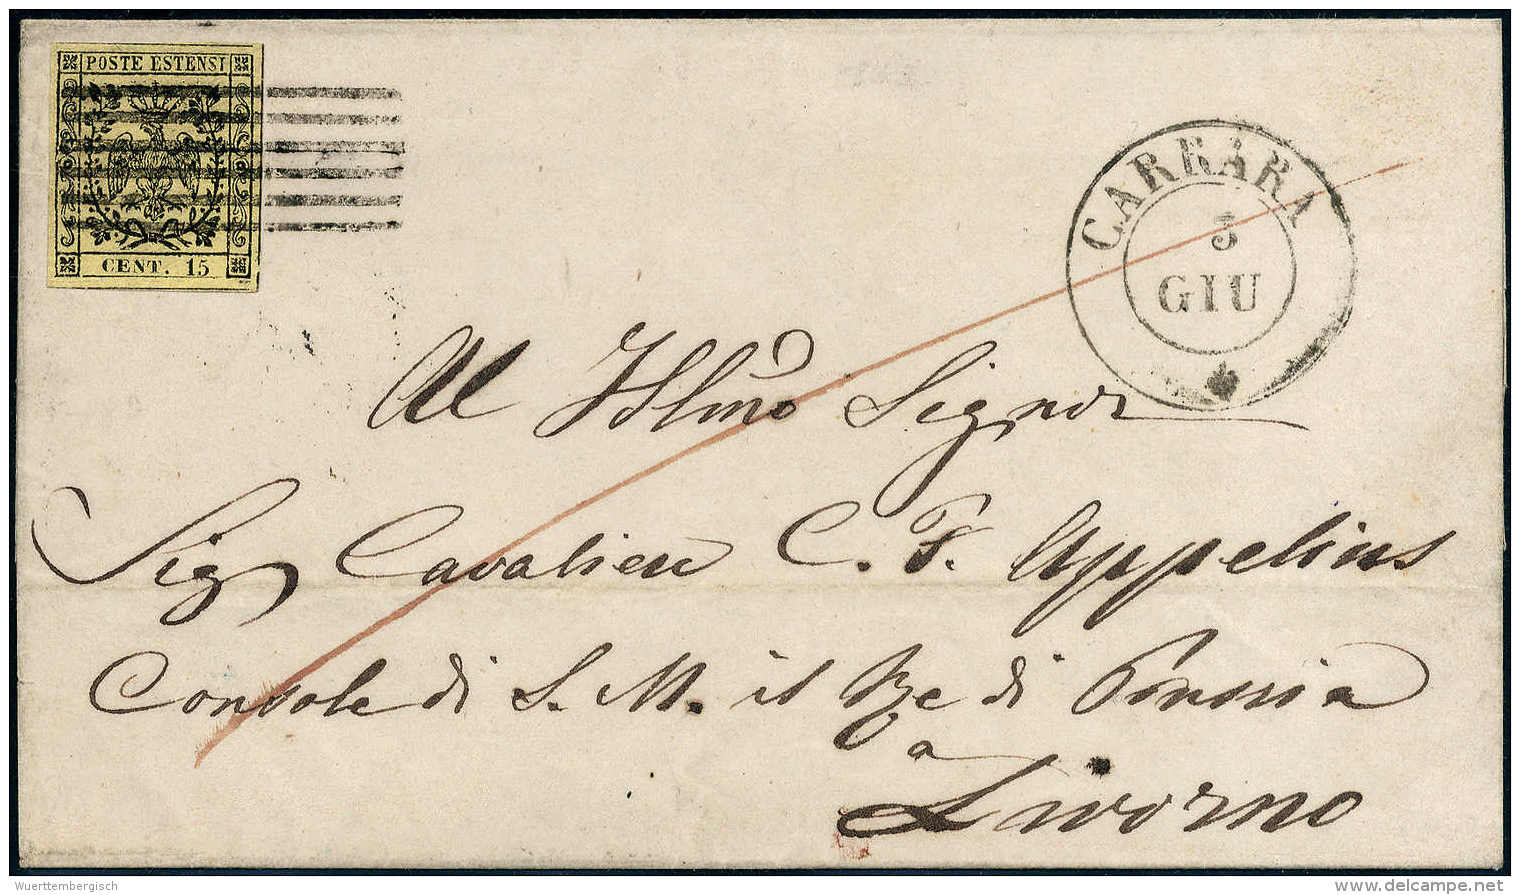 POSTE ESTENSI
CENT. 15
CARRARA
3
GIU
Al Illmo Signor
Sig Cavaliere C. F. Appelius
Console di S. M. il Re di Prussia
a
Livorno
Wuerttembergisch
delcampe.net